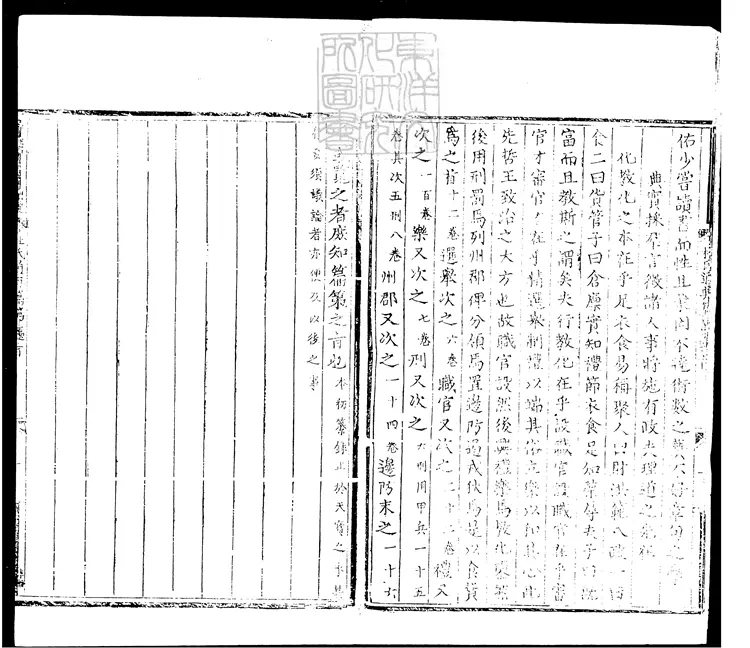 佑少嘗讀書而性且蒙固不達術數之藝不好章句之學
典實採羣言徵諸人事將施有政夫理道之先在
化教化之本在乎足衣食易稱聚人曰財洪範八政一曰
食二曰貨管子曰倉廩實知禮節衣食足知榮辱夫子曰既
富而且教斯之謂矣夫行教化在乎設職官設職官在乎審
官才審官才在乎精選舉制禮以端其俗立樂以和其心此
先哲王致治之大方也故職官設然後興禮樂焉教化
後用刑罰焉列州郡俾分領焉置邊防遏戎狄焉是以食貨
爲之首十二卷選舉次之六卷職官又次之二十二卷禮又
次之一百卷樂又次之七卷刑又次之大刑用甲兵一十五
卷其次五刑八卷州郡又次之一十四卷邊防末之一十六
覽之者庶知篇第之旨也本初纂錄止於天寶之
須議論者亦便及以後之事
東洋文化研究所圖書